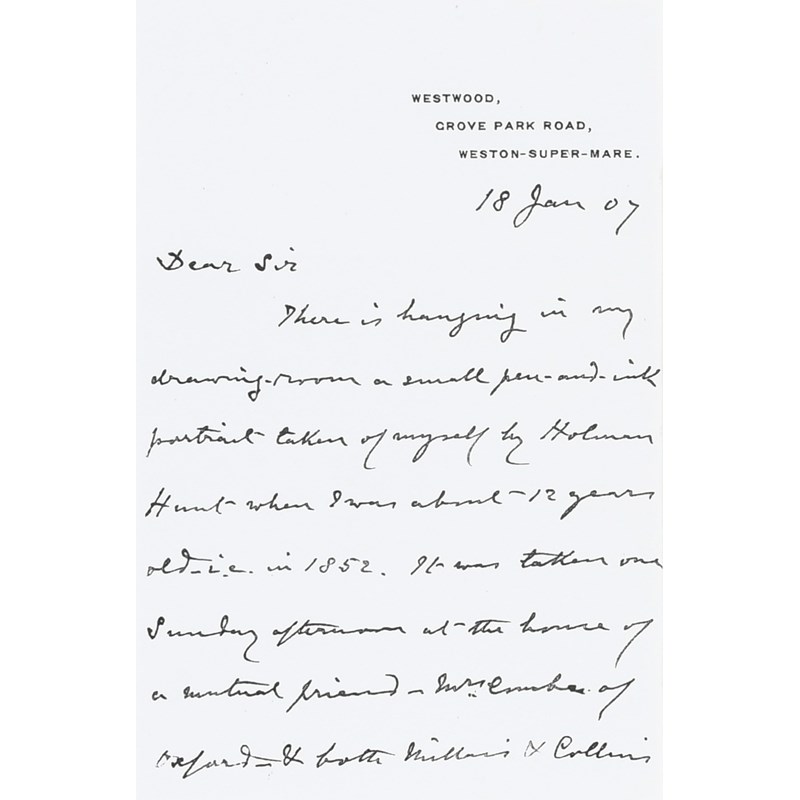 WESTWOOD,
GROVE PARK ROAD,
WESTON-SUPER-MARE.
18 Jan 07
Dear Sir
There is hanging in my
drawing-room a small pen-and-ink
portrait taken of myself by Holman
Hunt when I was about 12 years
old - i.e. in 1852. It was taken one
Sunday afternoon at the house of
a mutual friend - Mrs. Combe of
Oxford - & both Millais & Collins